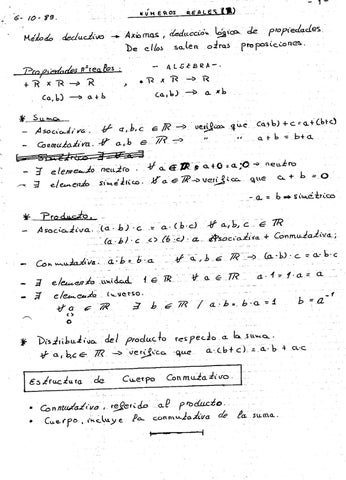 6-10-89. NÚMEROS REALES (ℝ) -1-
Método deductivo → Axiomas, deducción lógica de propiedades.
De ellos salen otras proposiciones.
Propiedades nº reales: - ALGEBRA -
+ ℝ × ℝ → ℝ , • ℝ × ℝ → ℝ
(a,b) → a+b (a,b) → a×b
* Suma.
- Asociativa. ∀ a,b,c ∈ ℝ → verifica que (a+b)+c = a+(b+c)
- Conmutativa. ∀ a,b ∈ ℝ → " " a+b = b+a
- ∃ elemento neutro. ∀ a ∈ ℝ ; a+0=a ; 0 → neutro
- ∃ elemento simétrico. ∀ a ∈ ℝ → verifica que a+b=0
-a = b → simétrico
* Producto.
- Asociativa. (a·b)·c = a·(b·c) ∀ a,b,c ∈ ℝ
(a·b)·c <> (b·c)·a Asociativa + Conmutativa;
- Conmutativa. a·b = b·a ∀ a,b ∈ ℝ → (a·b)·c = a·b·c
- ∃ elemento unidad 1 ∈ ℝ ∀ a ∈ ℝ a·1=1·a=a
- ∃ elemento inverso.
∀ a ∈ ℝ ∃ b ∈ ℝ / a·b=b·a=1 b=a⁻¹
<>
0
* Distributiva del producto respecto a la suma.
∀ a,b,c ∈ ℝ → verifica que a·(b+c) = a·b + a·c
Estructura de Cuerpo Conmutativo.
• Conmutativo, referido al producto.
• Cuerpo, incluye la conmutativa de la suma.